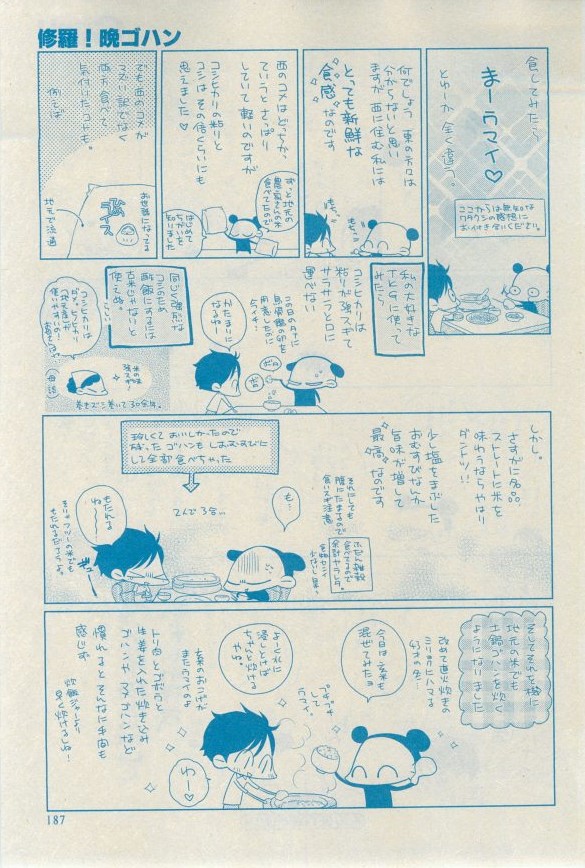 修羅！晩ゴハン
食してみたら、
まーウマイ♡
とゆーか全く違う。
ここからは無知な
ワタクシの感想に
お付き合いください。
何でしょう 東の方々は
分からないと思い
ますが西に住む私には
とっても新鮮な
食感なのです
もちっ
もちっ
西のコメはどっちか
ていうとさっぱり
していて軽いのですが
コシヒカリの粘りと
コシはその倍くらいにも
思えました♡
ずっと地元の
農家さんの米
食べてたので
はじめて
ちがいを
知りました
でも西のコメが
マズい訳でなく
両方食べて、
気付いたコトも。
例えば
お世話になってる
地元で流通
私の大好きな
TKGに使って
みたら、
コシヒカリは
粘りが強スギて
サラサラとロに
運べない
この日のタメに
烏骨鶏の卵を
用意したのに
かたまりに
なるわー
ボロ
ボロ
同じく強烈な
コシのため
酢飯にするには
古米じゃないと
使えぬ。
米の味
強スギ!
(母談)
巻きズシ巻いて30余年。
しかし。
さすがに名品。
ストレートに米を
味わうならやはり
ダントツ!!
少し塩をまぶした
おむすびなんか
旨味が増して
最高なのです
それにしても
腹にたまるので
食いスギ注意
も…
ふだん雑穀
食べてるので
余計ヤラレタ。
食物センイ
少ないし果。
2人で3合…
珍しくておいしかったので
残ったゴハンもしおむすびに
して全部食べちゃった
もたれる
ね〜
そりゃフツーの米でも
もたれるだろうよ。
そしてそれを機に
地元の米でも
土鍋ゴハンを炊く
ようになりました
改めて直火炊きの
ミリョクにハマる
今日は玄米も
混ぜてみたョ
プチプチ
して
ウマイ。
よーく水に
浸しとけば
ちゃんと炊ける
やね。
玄米のおこげが
またウマイのよ
わー♡
トリ肉とゴボウと
生姜を入れた炊き込み
ゴハンやマメゴハンなど
慣れるとそんなに手間も
感じず
炊飯ジャーより
早く炊けるしね!
187